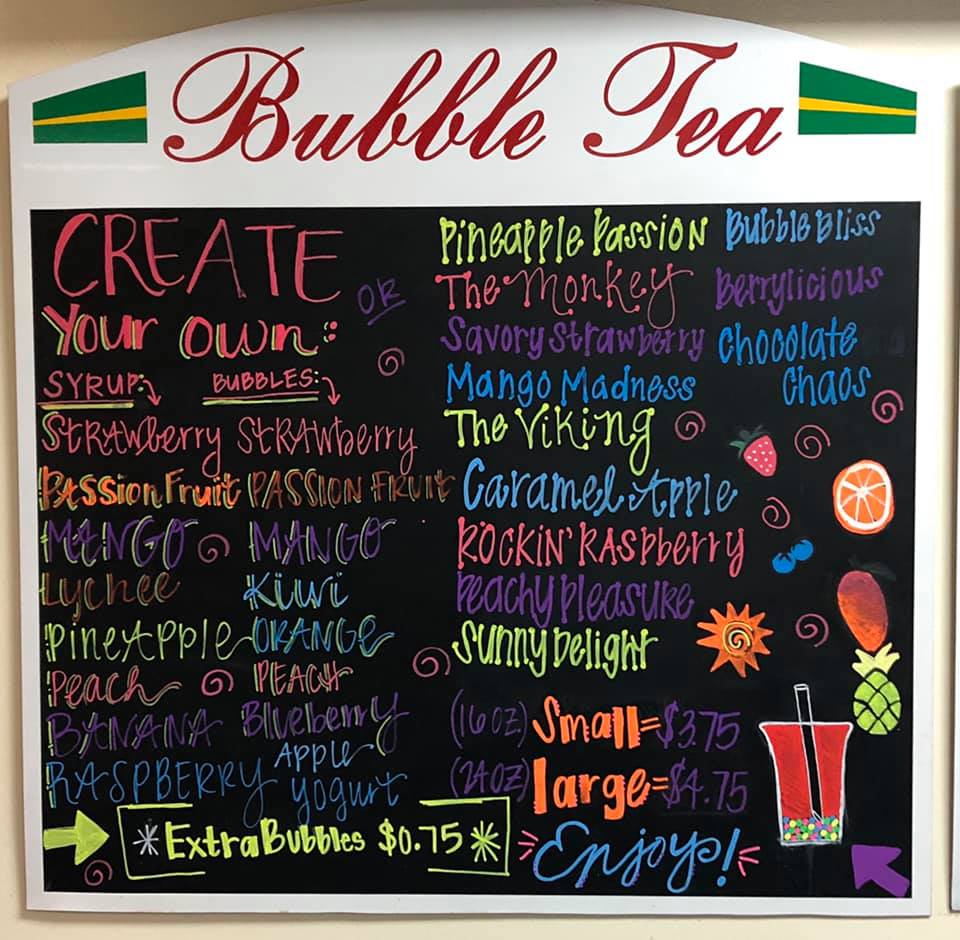 Bubble Tea
CREATE
Your Own:
OR
SYRUP:
BUBBLES:
Strawberry
Passion Fruit
MANGO
Lychee
Pineapple
Peach
BANANA
RASPBERRY
Strawberry
PASSION FRUIT
MANGO
Kiwi
ORANGE
PEACH
Blueberry
Apple
yogurt
*Extra Bubbles $0.75*
Pineapple Passion
The Monkey
Savory Strawberry
Mango Madness
The Viking
Caramel Apple
ROCKIN' RASpberry
Peachy Pleasure
Sunny Delight
Bubble Bliss
Berrylicious
Chocolate
Chaos
(16oz) Small=$3.75
(24oz) large=$4.75
Enjoy!